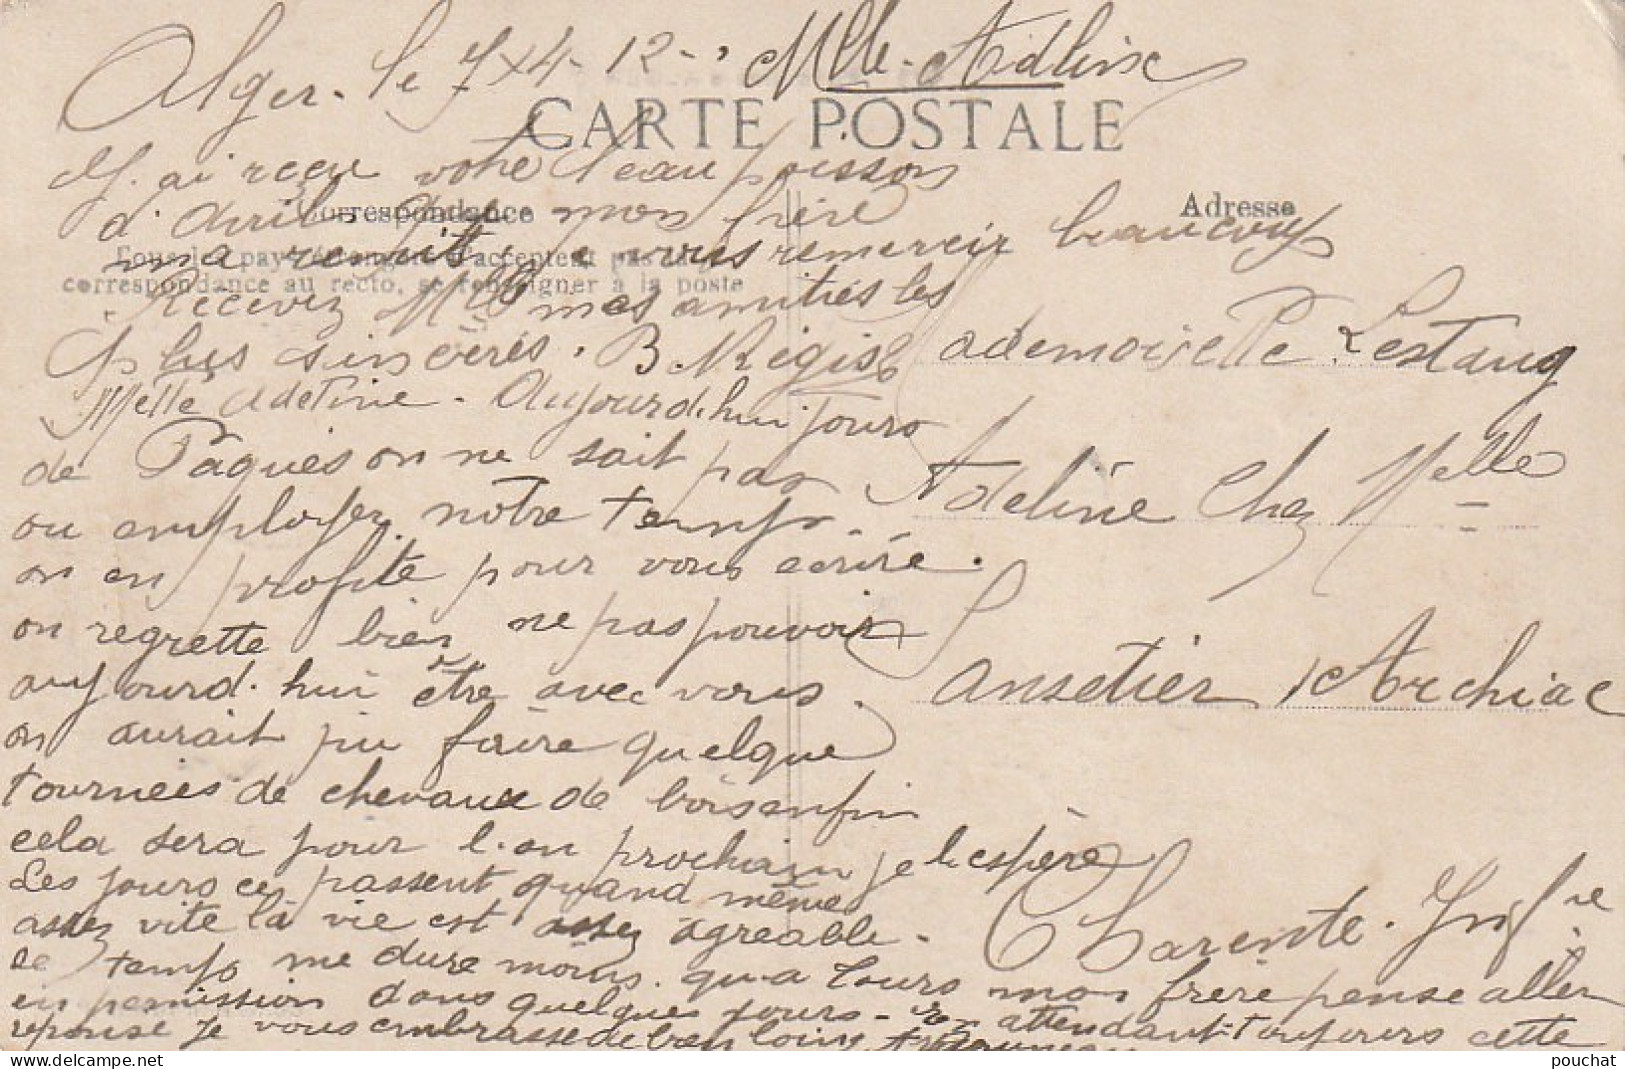 Alger. le 7x4-12-, Mlle. Adline
CARTE POSTALE
J. ai reçu votre beau poisson
d'avril. mon frère
Correspondance
Adresse
ma remit, je vous remercir beaucoup
Tous les pays étrangers n'acceptent pas la
correspondance au recto, se renseigner à la poste
Recevez Mlle mes amitiés les
plus sincères. B. Régis
Mademoiselle Lestang
Melle Adeline. Aujourd.hui jours
de Pâques on ne sait pas
Adeline Chez Melle
ou employer notre temps.
on en profite pour vous écrire.
on regrette bien ne pas pouvoir
aujourd.hui être avec vous.
Lansetier Archiac
on aurait pu faire quelque
tournées de chevaux de bois enfin
cela sera pour l.an prochain je l.espère
Les jours ce passent quand même
Charente. Infre
assez vite la vie est assez agréable.
le temps me dure moins. qu.a Tours mon frère pense aller
en permission dans quelques jours - en attendant toujours cette
reponse je vous embrasse de bien loin,
pouchat
delcampe.net